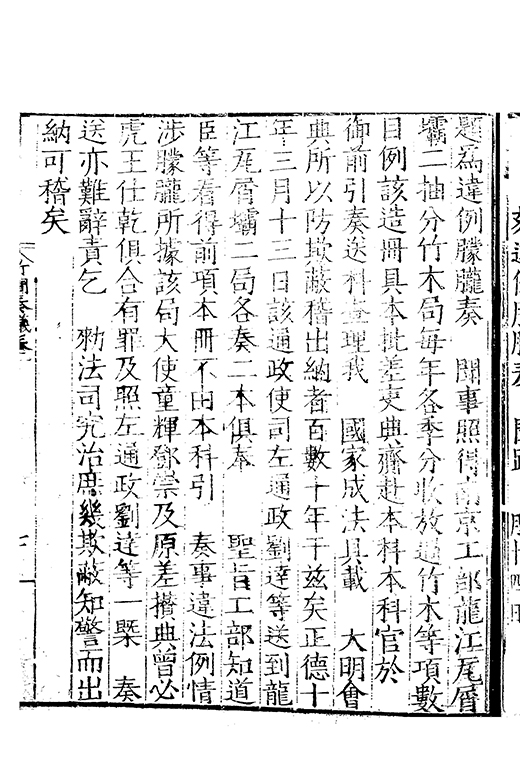 題為違例朦朧奏　聞事照得南京工部龍江瓦屑
壩二抽分竹木局每年各季分收放過竹木等項數
目例該造冊具本批差吏典齎赴本科本科官於
御前引奏送科查理我　國家成法具載　大明會
典所以防欺蔽稽出納者百數十年于茲矣正德十
年三月十三日該通政使司左通政劉達等送到龍
江瓦屑壩二局各奏二本俱奉　聖旨工部知道
臣等看得前項本冊不由本科引　奏事違法例情
涉朦朧所據該局大使童輝鄧崇及原差攢典曾必
虎王仕乾俱合有罪及照左通政劉達等一槩　奏
送亦難辭責乞　勑法司究治庶幾欺蔽知警而出
納可稽矣